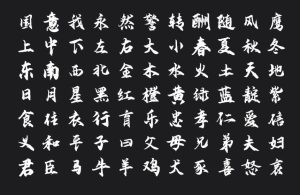 国意我永然警转酬随风鹰
上中下左右大小春夏秋冬
东南西北金木水火土天地
日月星黑红橙黄绿蓝靛紫
食住衣行育乐忠孝仁爱信
义和平子曰父母兄弟夫妇
君臣马牛羊鸡犬豕喜怒哀